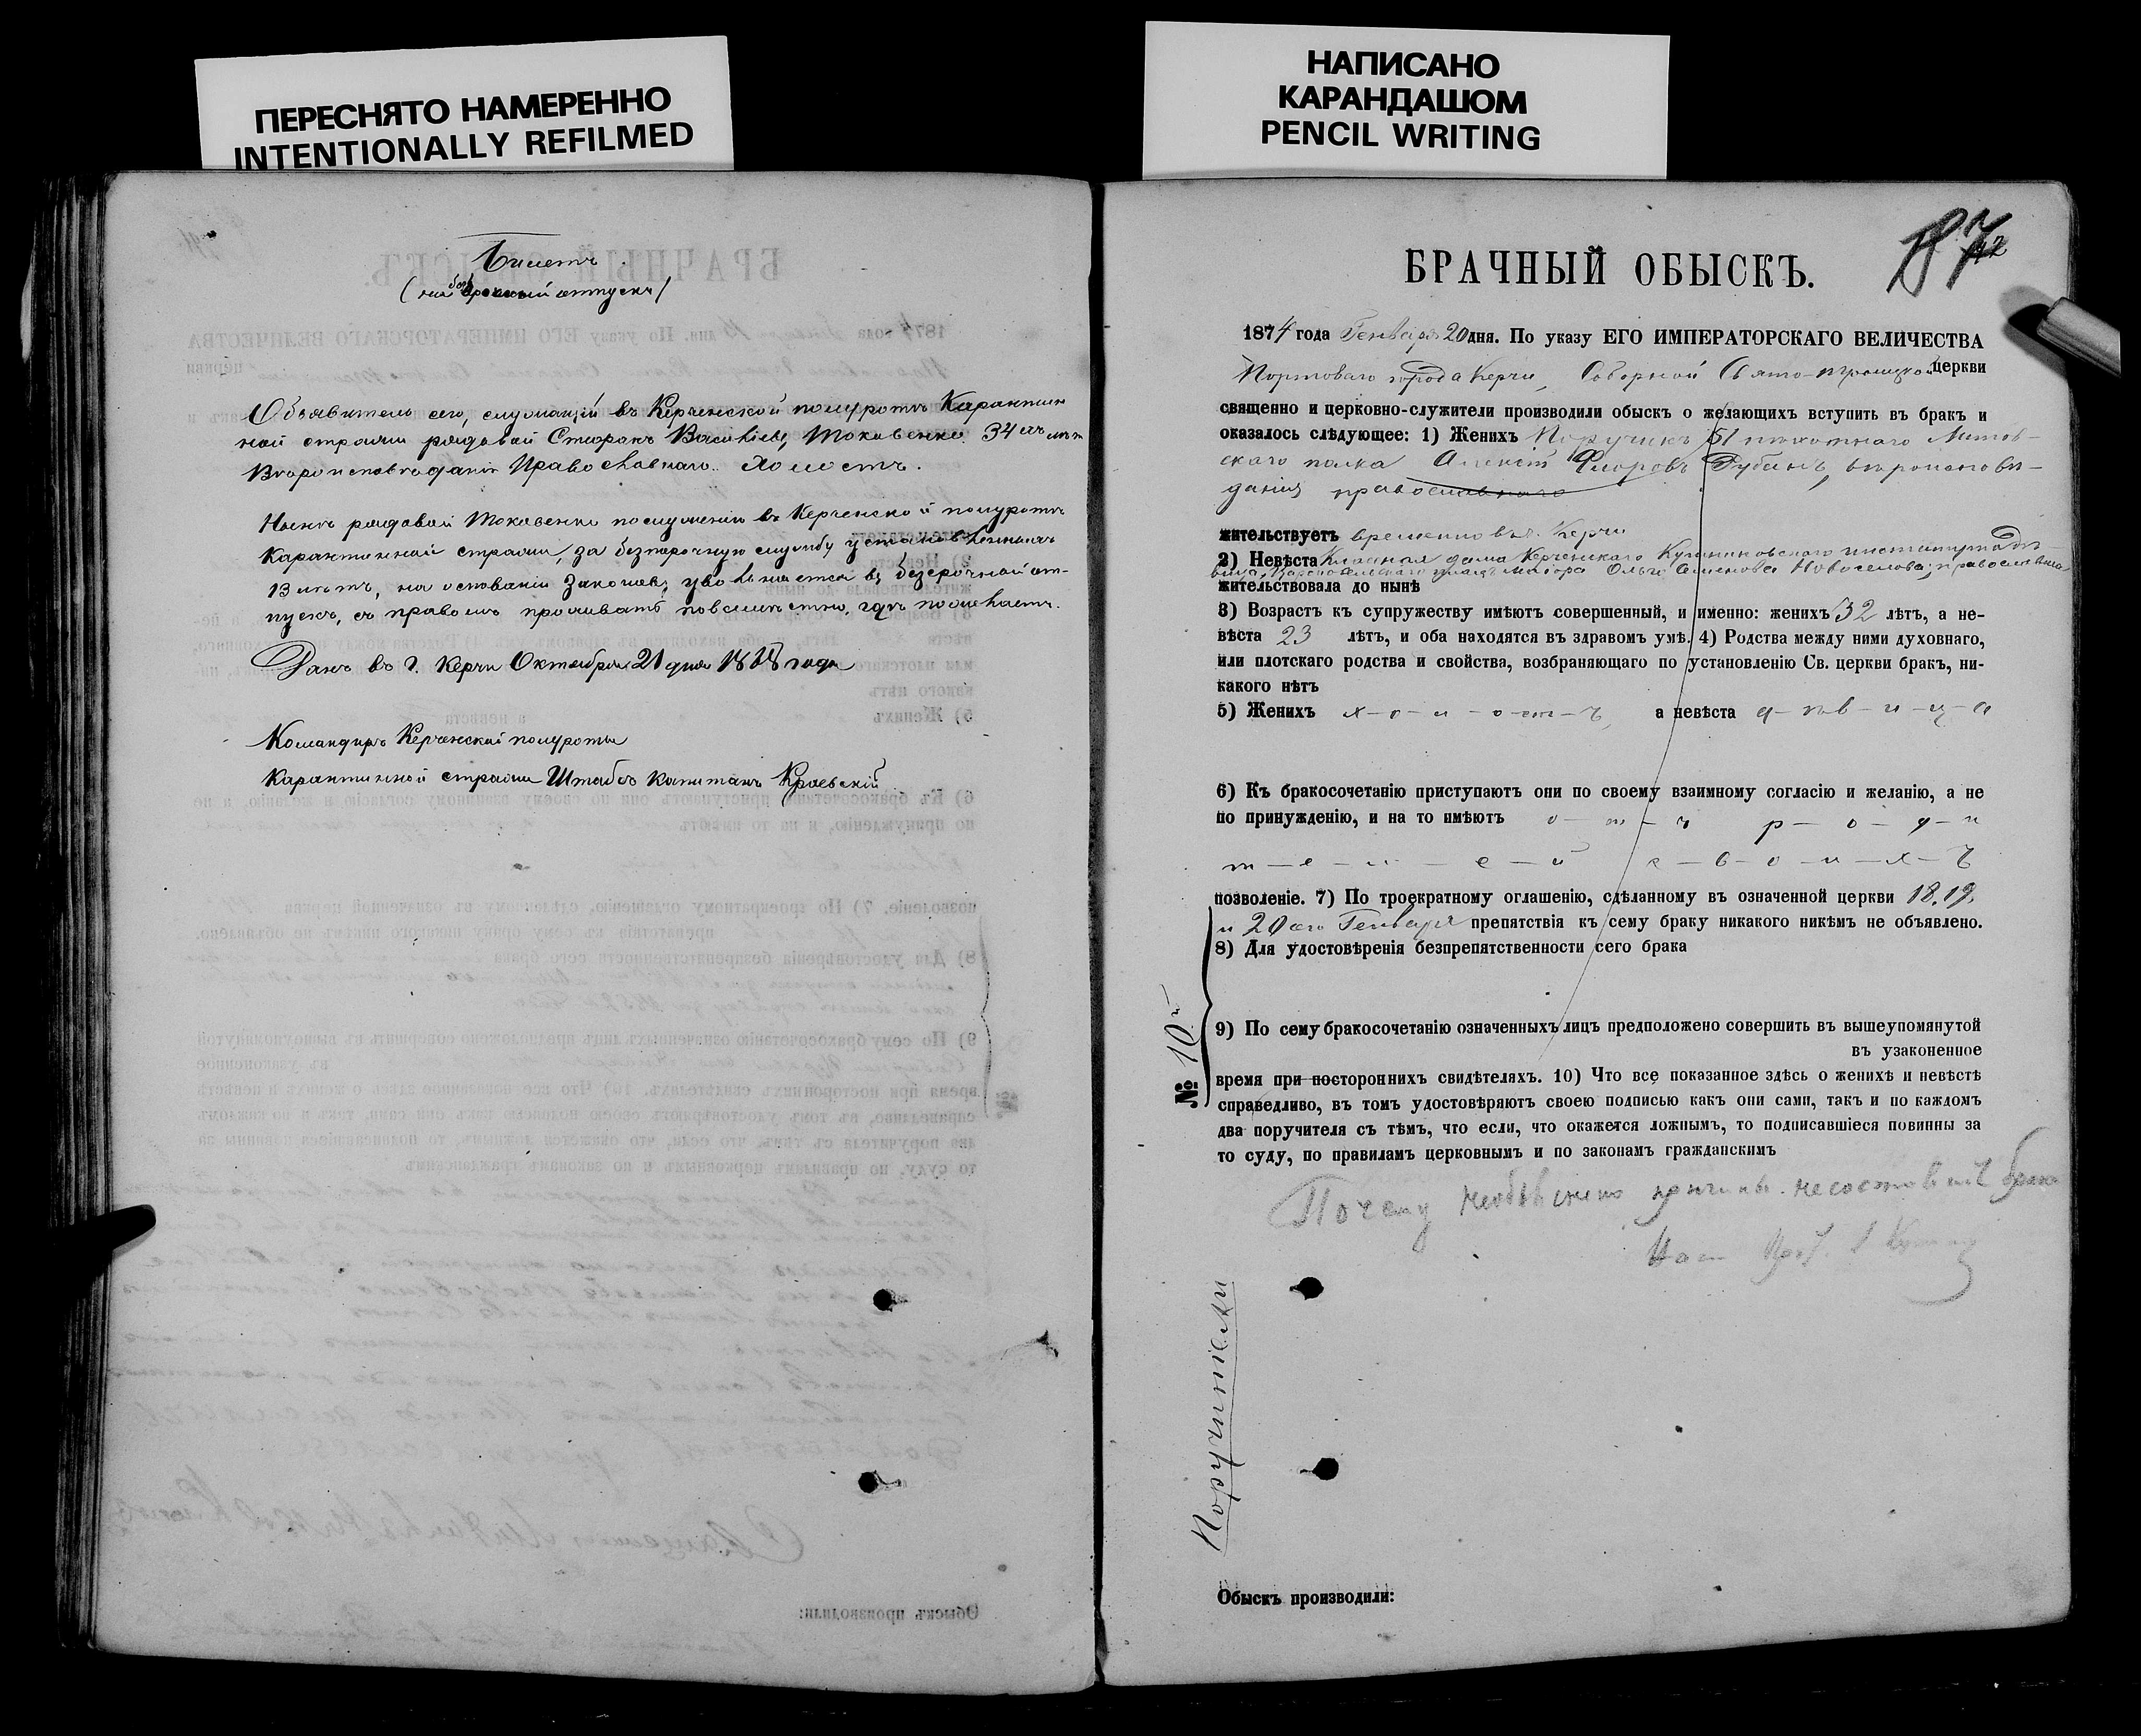 ПЕРЕСНЯТО НАМЕРЕННО
INTENTIONALLY REFILMED
НАПИСАНО
КАРАНДАШОМ
PENCIL WRITING
Билетъ
Объявитель сего, служащій въ Керченской полуротѣ Карантин
ной стражи рядовой Васильевъ Токавенко 34 лѣтъ
Вѣроисповѣданія Православнаго. Холостъ.
Нынѣ рядовой Токавенко по служенію въ Керченской полуротѣ
Карантинной стражи, за безпорочную службу установленныхъ
на основаніи Законовъ, увольняется въ безсрочный от-
пускъ, съ правомъ проживать повсемѣстно, гдѣ пожелаетъ.
Данъ въ г. Керчи Октября 21 дня года
Командиръ Керченской полуроты
Карантинной стражи Штабсъ Капитанъ Краевскій
БРАЧНЫЙ ОБЫСКЪ.
1874 года Генваря 20 дня. По указу ЕГО ИМПЕРАТОРСКАГО ВЕЛИЧЕСТВА
Портоваго города Керчи, Соборной Свято-Троицкой церкви
священно и церковно-служители производили обыскъ о желающихъ вступить въ бракъ и
оказалось слѣдующее: 1) Женихъ Поручикъ 51 пѣхотнаго Литов-
скаго полка Алексѣй Флоровъ Рубанъ, вѣроисповѣ-
данія православнаго
жительствуетъ временно въ г. Керчи
2) Невѣста Классная дама Керченскаго Кушниковскаго института дѣ-
вица, маіора Ольга Семенова Новоселова, православная
жительствовала до нынѣ
3) Возрастъ къ супружеству имѣютъ совершенный, и именно: женихъ 32 лѣтъ, а не-
вѣста 23 лѣтъ, и оба находятся въ здравомъ умѣ. 4) Родства между ними духовнаго,
или плотскаго родства и свойства, возбраняющаго по установленію Св. церкви бракъ, ни-
какого нѣтъ
5) Женихъ х-о-л-о-ст-ъ, а невѣста д-ѣв-и-ц-а
6) Къ бракосочетанію приступаютъ они по своему взаимному согласію и желанію, а не
по принужденію, и на то имѣютъ о-т-ъ р-о-д-и
т-е-л-е-й с-в-о-и-х-ъ
позволеніе. 7) По троекратному оглашенію, сдѣланному въ означенной церкви 18. 19.
и 20 его Генваря препятствія къ сему браку никакого никѣмъ не объявлено.
8) Для удостовѣренія безпрепятственности сего брака
№ 10й
9) По сему бракосочетанію означенныхъ лицъ предположено совершить въ вышеупомянутой
въ узаконенное
время при постороннихъ свидѣтеляхъ. 10) Что все показанное здѣсь о женихѣ и невѣстѣ
справедливо, въ томъ удостовѣряютъ своею подписью какъ они сами, такъ и по каждомъ
два поручителя съ тѣмъ, что если, что окажется ложнымъ, то подписавшіеся повинны за
то суду, по правиламъ церковнымъ и по законамъ гражданскимъ
Почему необъяснено причины брака
Поручители
Обыскъ производили: